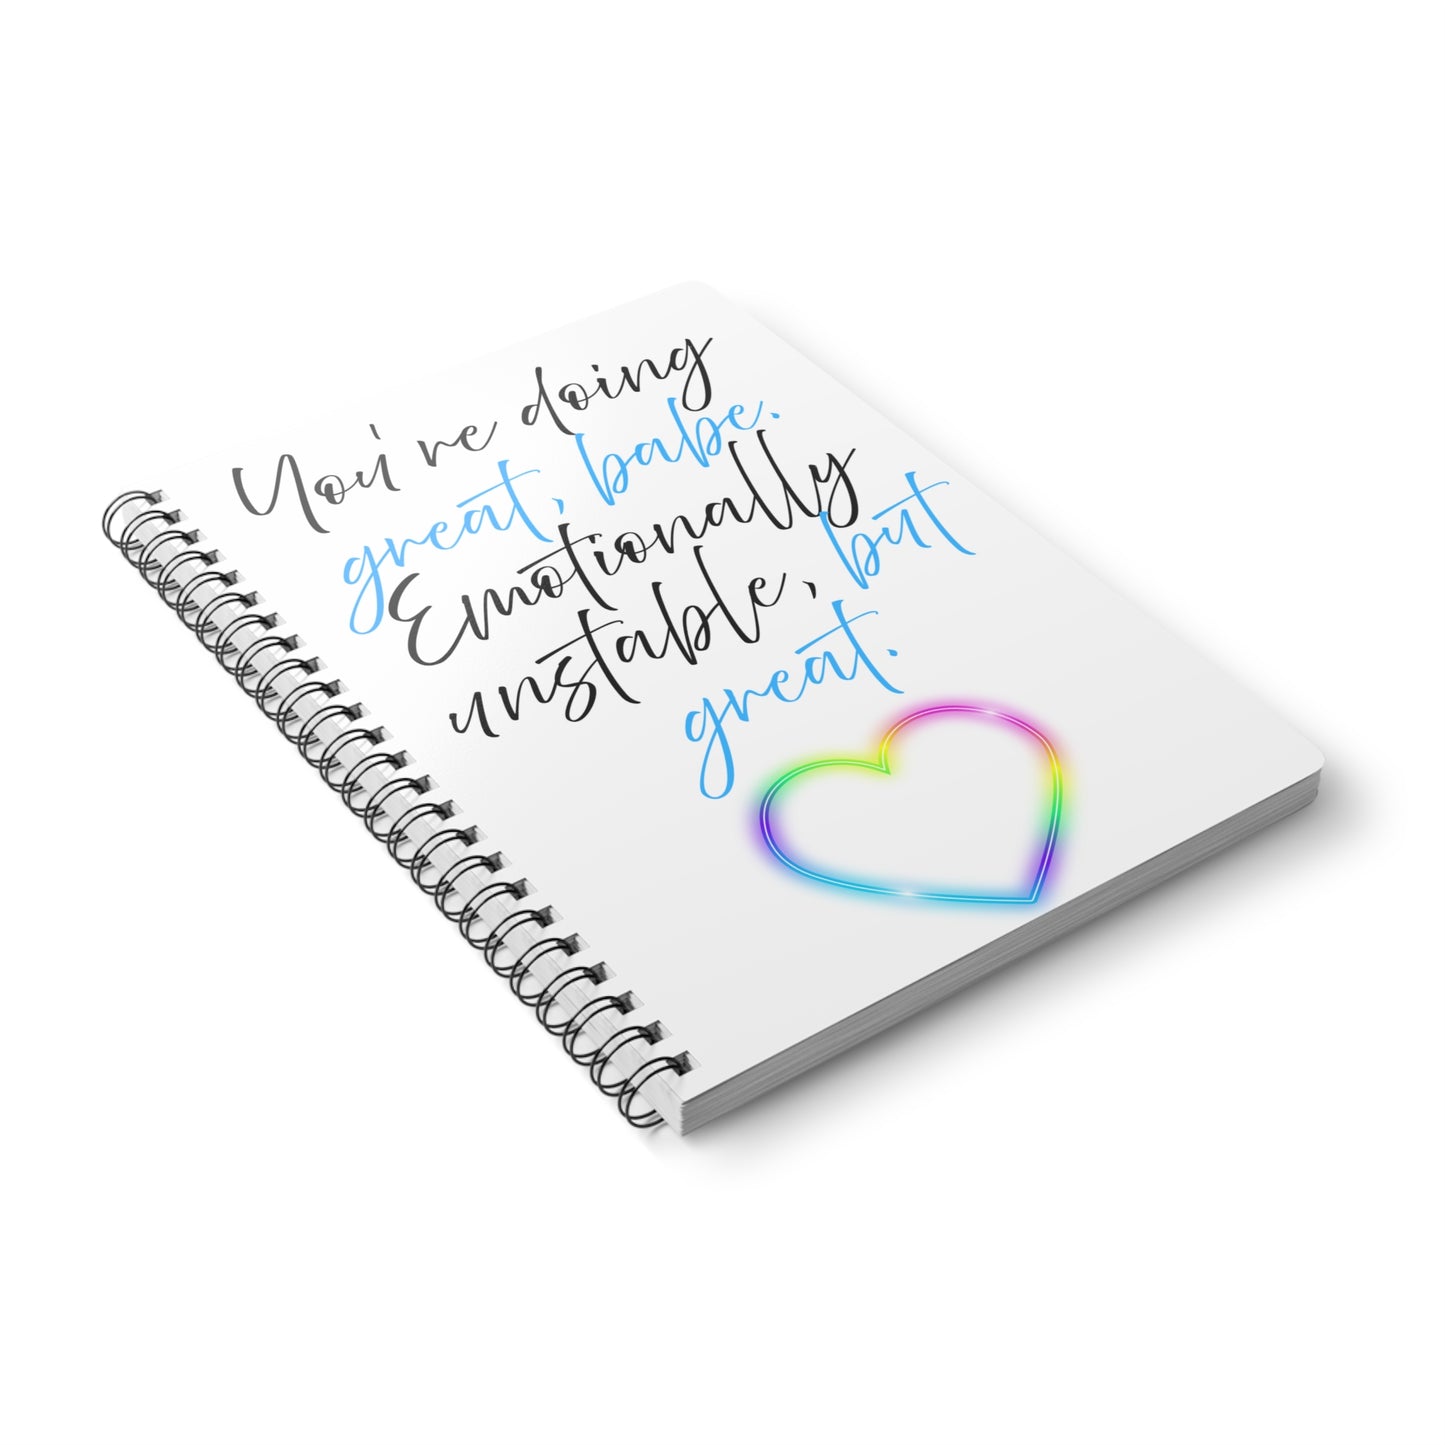 You're doing
great, babe.
Emotionally
unstable, but
great.